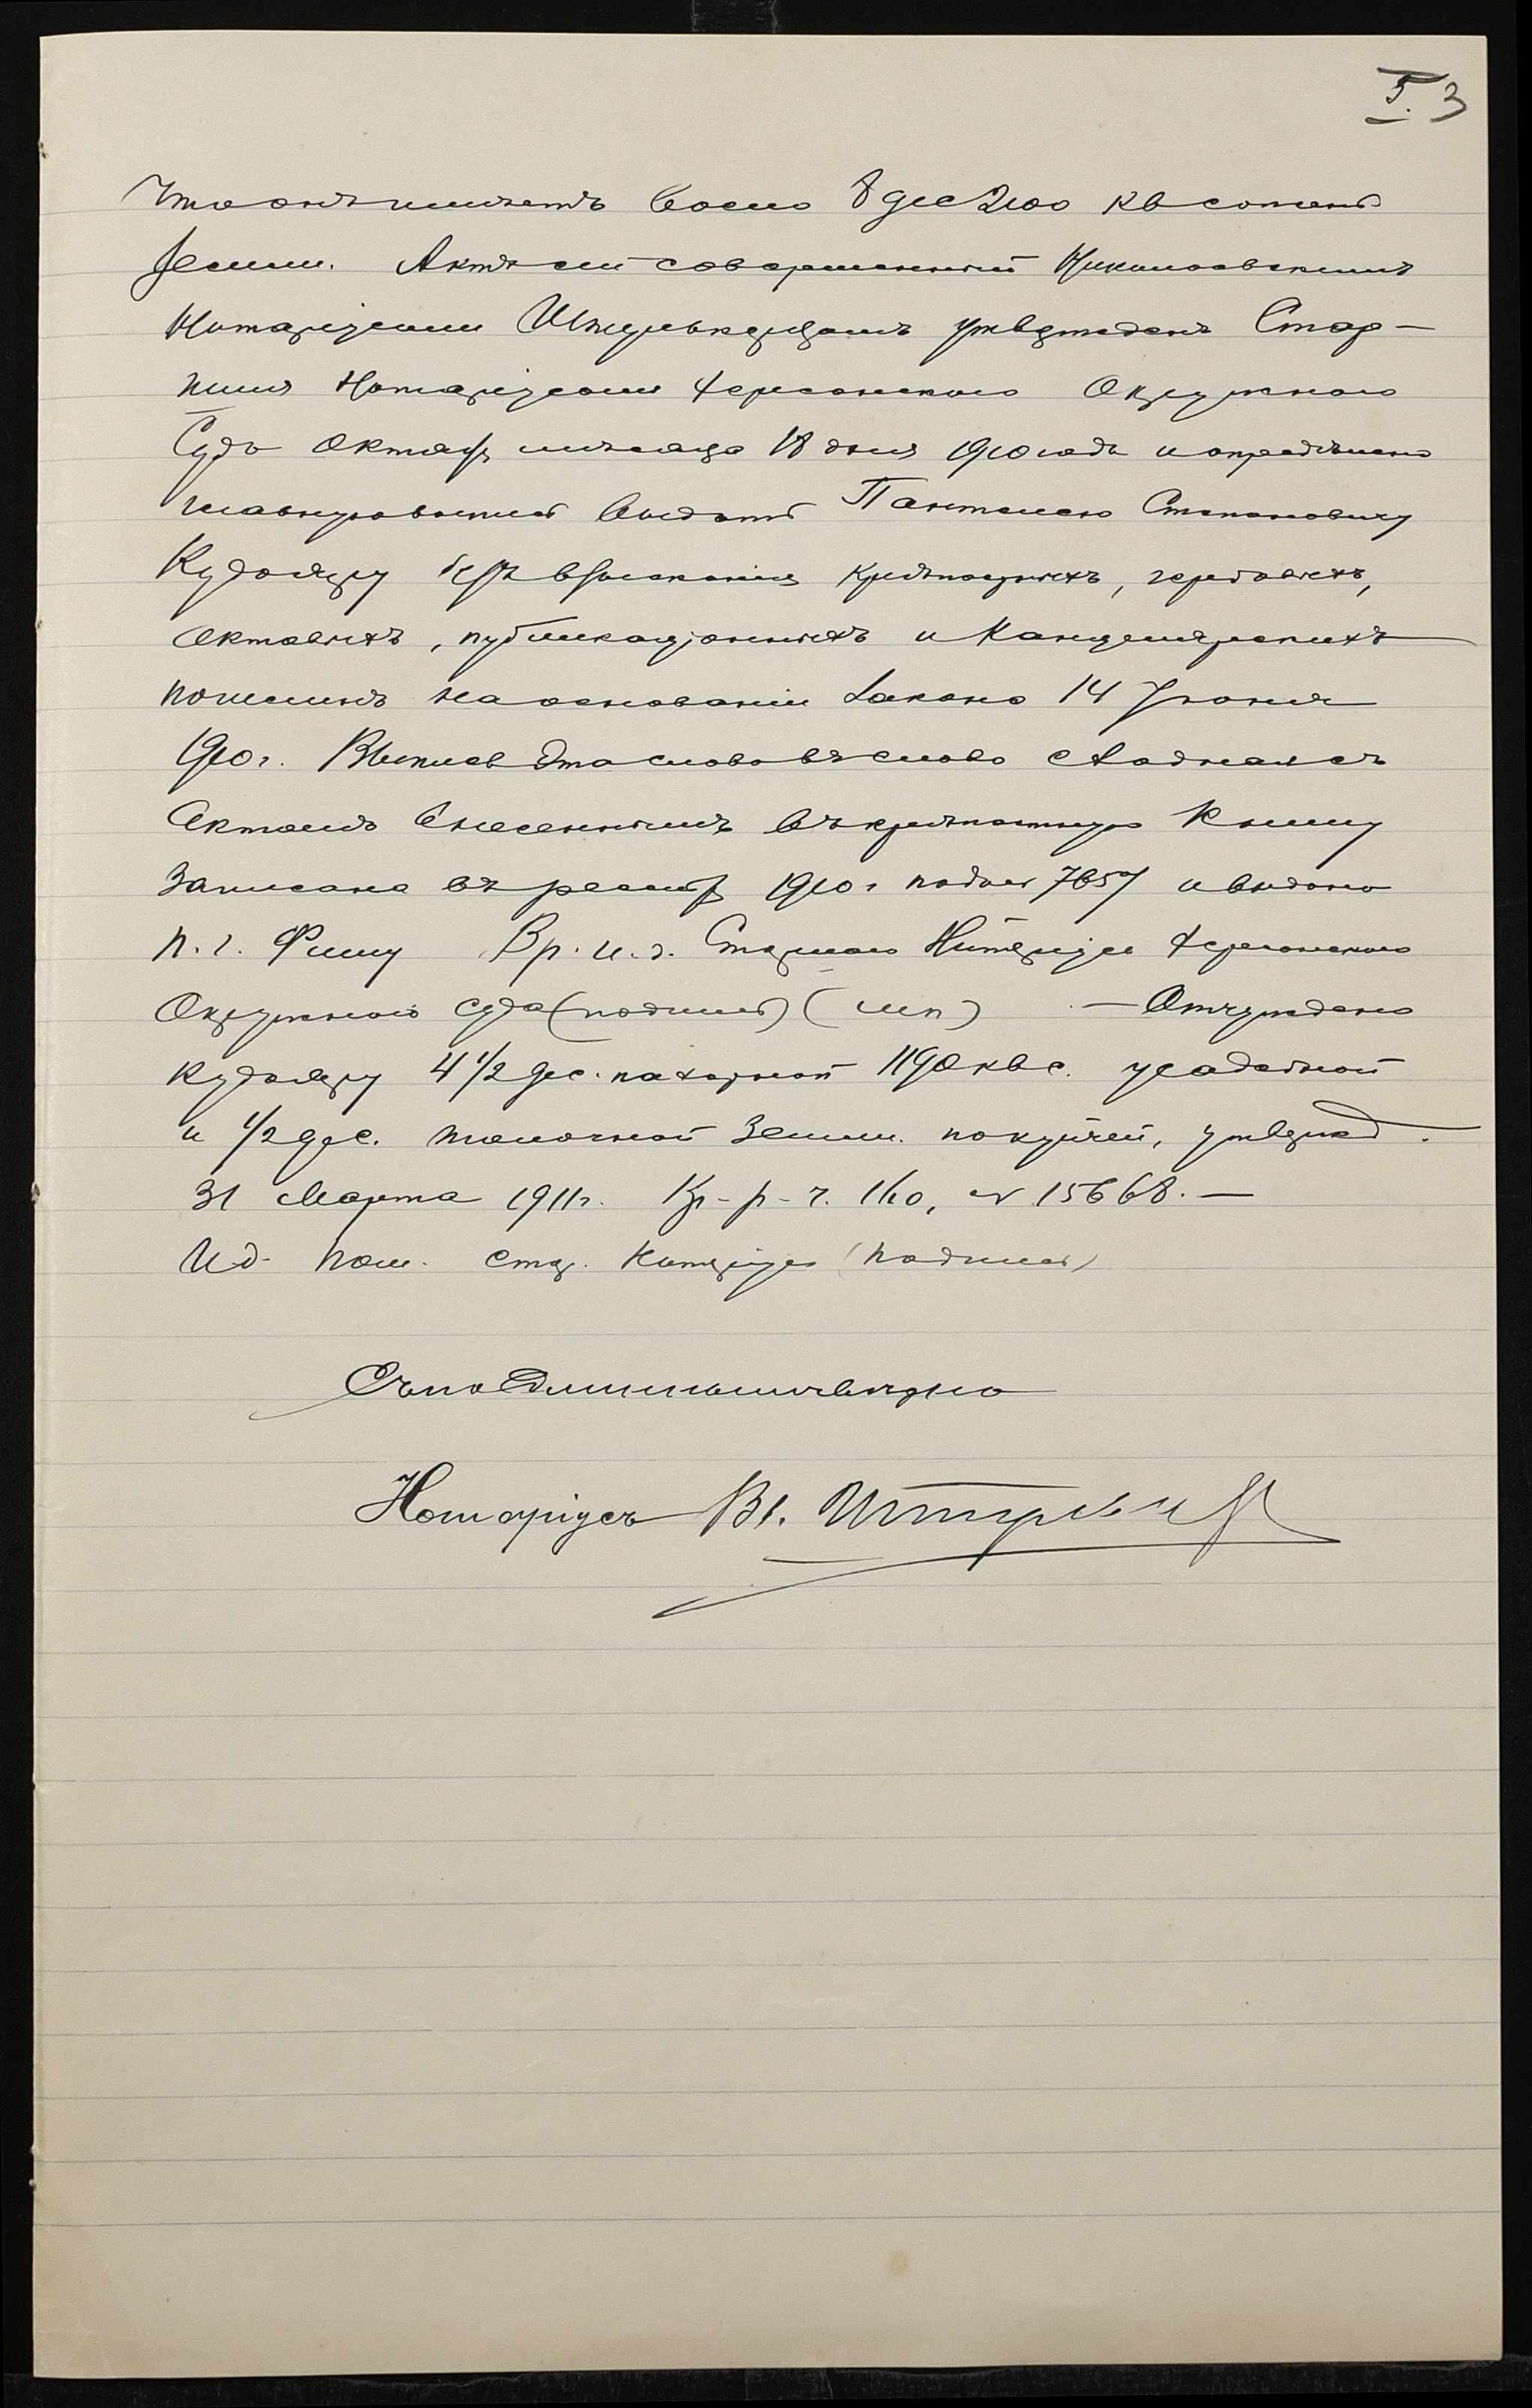 3
что онъ имѣетъ всего 8 дес 2100 кв сажень
земли. Актъ сей совершенный Николаевскимъ
Нотаріусомъ утвержденъ Стар-
шимъ Нотаріусомъ Херсонскаго Окружнаго
Суда Октября мѣсяца 18 дня 1910 года и опредѣлено
главную выпись выдать Пантелею Степановичу
Кудояру безъ взысканія крѣпостныхъ, гербовыхъ,
актовыхъ, публикаціонныхъ и Канцелярскихъ
пошлинъ на основаніи Закона 14 Іюня
1910 г. Выпись эта слово въ слово сходная съ
Актомъ внесеннымъ въ крѣпостную Книгу
записана въ реестр 1910 г подъ № и выдана
п. г. Вр. и. д. Старшаго Нотаріуса Херсонскаго
Окружнаго Суда (подпись) (мп) — Отчуждено
Кудояру 4 1/2 дес. пахатной 1190 квс. усадебной
и 1/2 дес. толочной земли. купчей, утвержд.
31 Марта 1911 г. Кр-р-ч. № 15668. —
И д. Пом. Стар. Нотаріуса (подпись)
Съ подлиннымъ вѣрно
Нотаріусъ Вл.